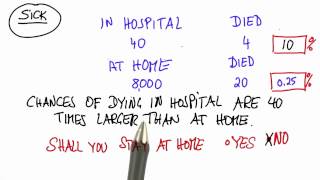 SICK
IN HOSPITAL DIED
40 4 10%
AT HOME DIED
8,000 20 0.25%
CHANCES OF DYING IN HOSPITAL ARE 40
TIMES LARGER THAN AT HOME.
SHALL YOU STAY AT HOME YES NO